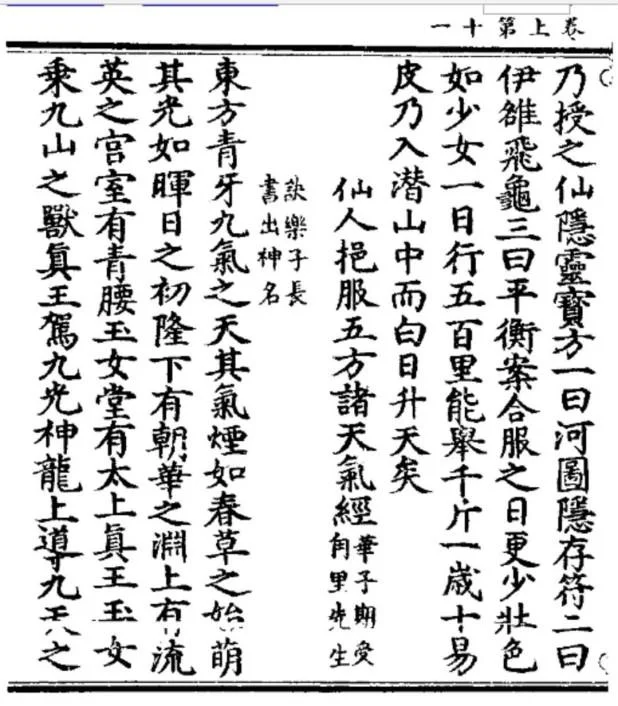 卷上第十一
乃授之仙隱靈寶方一曰河圖隱存符二曰
伊雒飛龜三曰平衡案合服之日更少壯色
如少女一日行五百里能舉千斤一歲十易
皮乃入潛山中而白日升天矣
仙人挹服五方諸天氣經華子期受
角里先生
訣樂子長
書出神名
東方青牙九氣之天其氣煙如春草之始萌
其光如暉日之初隆下有朝華之淵上有流
英之宮室有青腰玉女堂有太上眞王玉女
乘九山之獸眞王駕九光神龍上導九天之